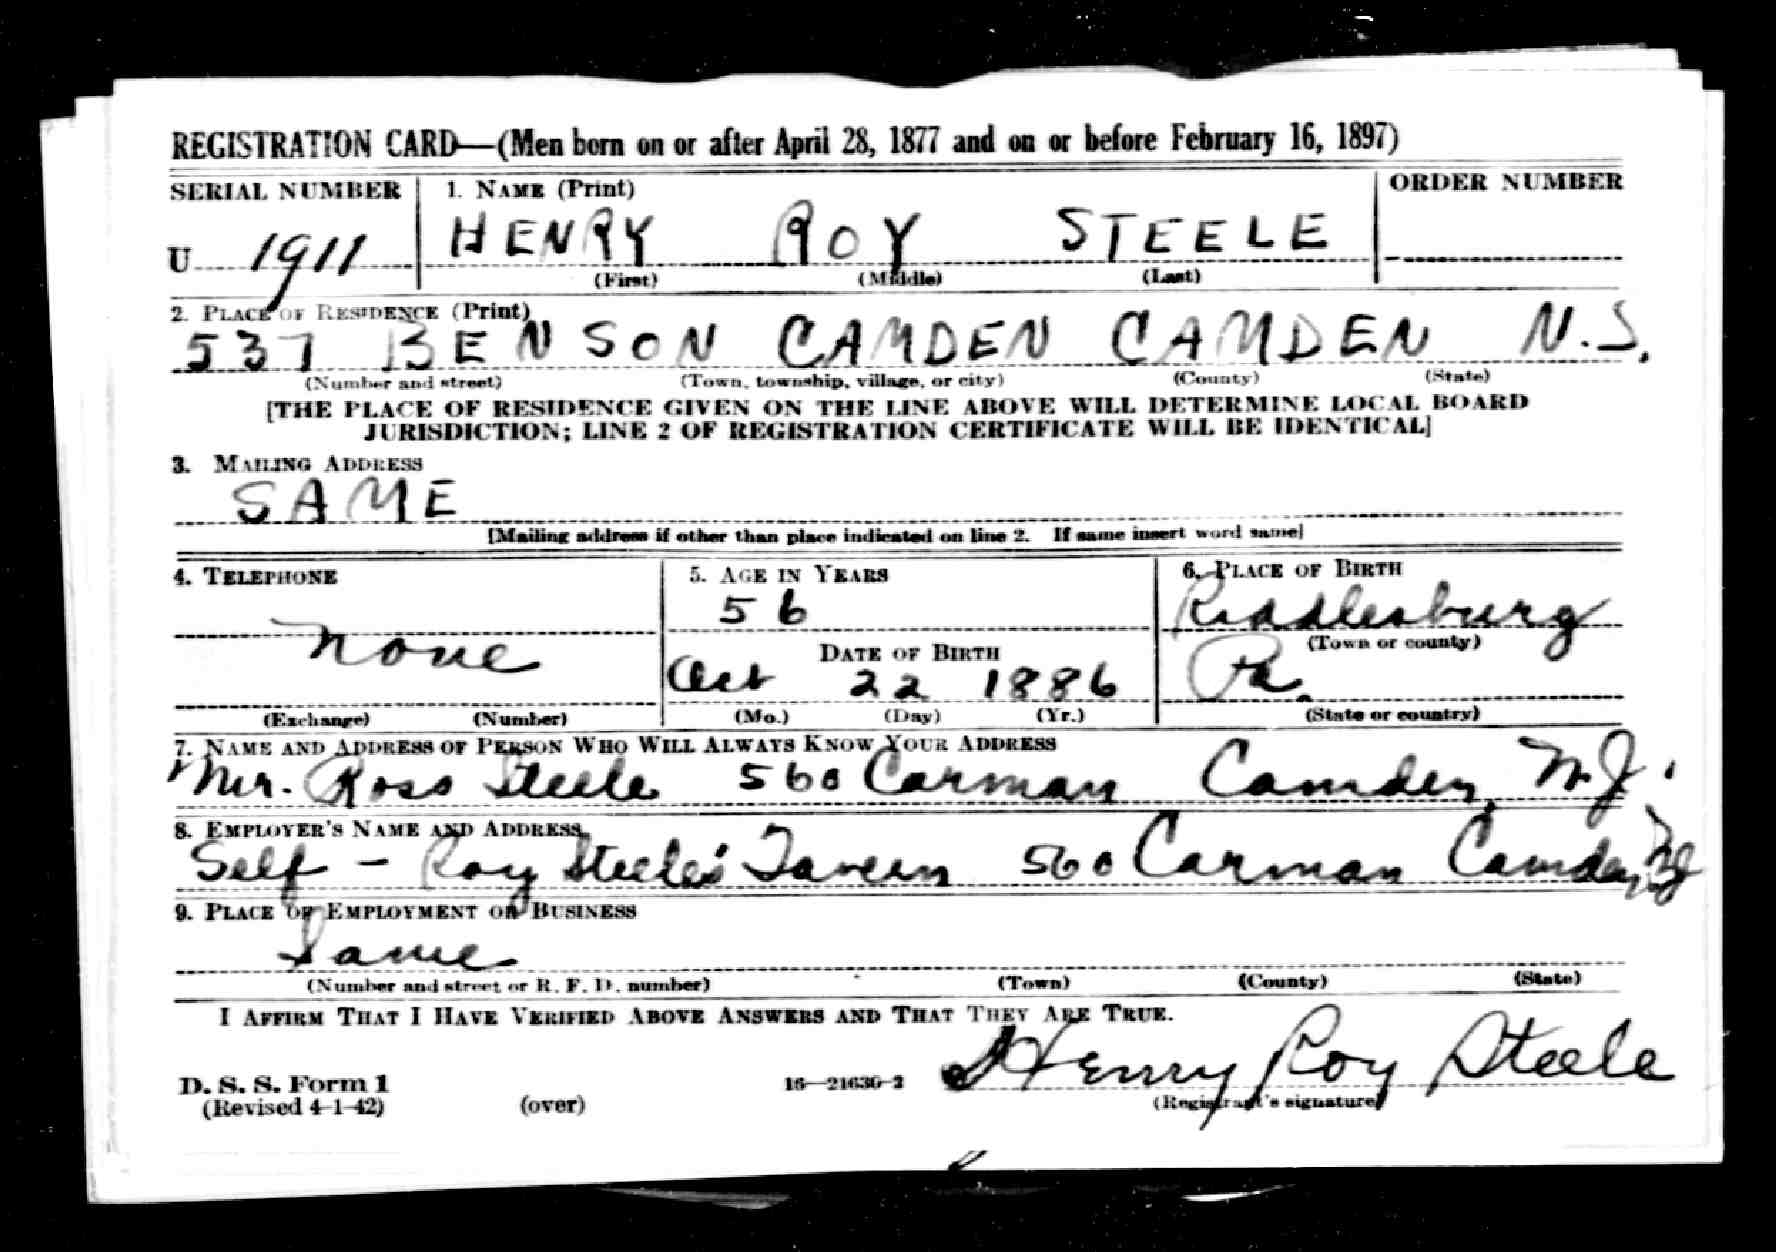 REGISTRATION CARD—(Men born on or after April 28, 1877 and on or before February 16, 1897)
SERIAL NUMBER 1. NAME (Print) ORDER NUMBER
U 1911 HENRY ROY STEELE
(First) (Middle) (Last)
2. PLACE OF RESIDENCE (Print)
537 BENSON CAMDEN CAMDEN N.J.
(Number and street) (Town, township, village, or city) (County) (State)
[THE PLACE OF RESIDENCE GIVEN ON THE LINE ABOVE WILL DETERMINE LOCAL BOARD
JURISDICTION; LINE 2 OF REGISTRATION CERTIFICATE WILL BE IDENTICAL]
3. MAILING ADDRESS
SAME
[Mailing address if other than place indicated on line 2. If same insert word same]
4. TELEPHONE 5. AGE IN YEARS 6. PLACE OF BIRTH
56 Riddlesburg
None DATE OF BIRTH (Town or county)
Oct 22 1886 Pa.
(Exchange) (Number) (Mo.) (Day) (Yr.) (State or country)
7. NAME AND ADDRESS OF PERSON WHO WILL ALWAYS KNOW YOUR ADDRESS
Mr. Ross Steele 560 Carman Camden, N.J.
8. EMPLOYER'S NAME AND ADDRESS
Self – Roy Steele's Tavern 560 Carman Camden, NJ
9. PLACE OF EMPLOYMENT OR BUSINESS
Same
(Number and street or R. F. D. number) (Town) (County) (State)
I AFFIRM THAT I HAVE VERIFIED ABOVE ANSWERS AND THAT THEY ARE TRUE.
Henry Roy Steele
D. S. S. Form 1 16—21630-2
(Revised 4-1-42) (over) (Registrant's signature)